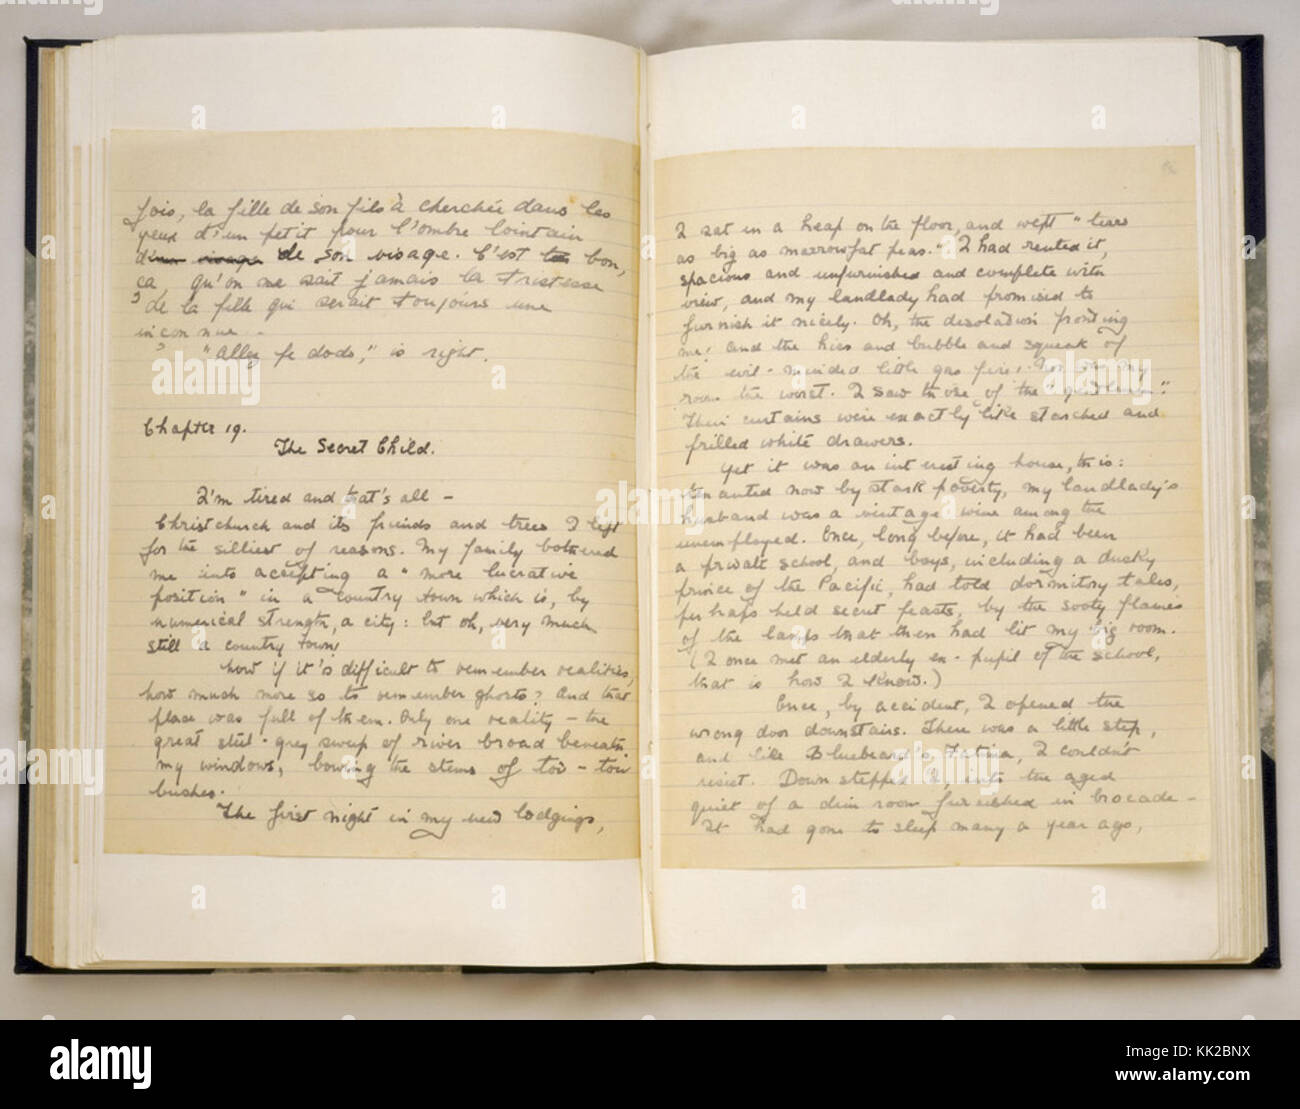 fois, la fille de son fils à cherchée dans les
yeux d'un petit pour l'ombre lointain
de son visage. C'est bon,
ça, qu'on ne sait jamais la tristesse
de la fille qui serait toujours une
inconnue.
"Allez fe dodo," is right.
Chapter 19.
The Secret Child.
I'm tired and that's all -
Christchurch and its friends and trees I left
for the silliest of reasons. My family bothered
me into accepting a "more lucrative
position" in a country town which is, by
numerical strength, a city: but oh, very much
still a country town!
how if it's difficult to remember realities,
how much more so to remember ghosts? And that
place was full of them. Only one reality - the
great steel-grey sweep of river broad beneath
my windows, bowing the stems of toi-toi
bushes.
The first night in my new lodgings,
I sat in a heap on the floor, and wept "tears
as big as marrowfat peas." I had rented it,
spacious and unfurnished and complete with
view, and my landlady had promised to
furnish it nicely. Oh, the desolation fronting
me! And the hiss and bubble and squeak of
the evil-minded little gas fire! Nor was my
room the worst. I saw those of the "gentlemen."
Their curtains were exactly like starched and
frilled white drawers.
Yet it was an interesting house, this:
tenanted now by stark poverty, my landlady's
husband was a vintage wine among the
unemployed. Once, long before, it had been
a private school, and boys, including a ducky
prince of the Pacific, had told dormitory tales,
perhaps held secret feasts, by the sooty flames
of the lamps that then had lit my big room.
(I once met an elderly ex-pupil of the school,
that is how I know.)
Once, by accident, I opened the
wrong door downstairs. There was a little step,
and like Bluebeard's Fatima, I couldn't
resist. Down stepped I, into the aged
quiet of a dim room furnished in brocade -
It had gone to sleep many a year ago,
alamy
www.alamy.com
Image ID: KK2BNX